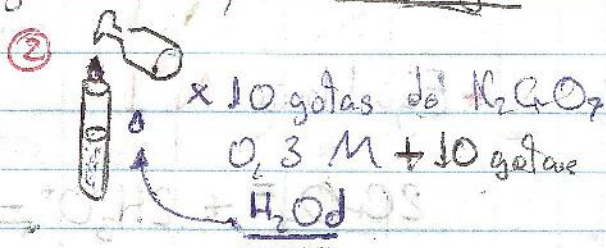 ②
x 10 gotas de K₂CrO₇
0,3 M + 10 gotas
H₂Od